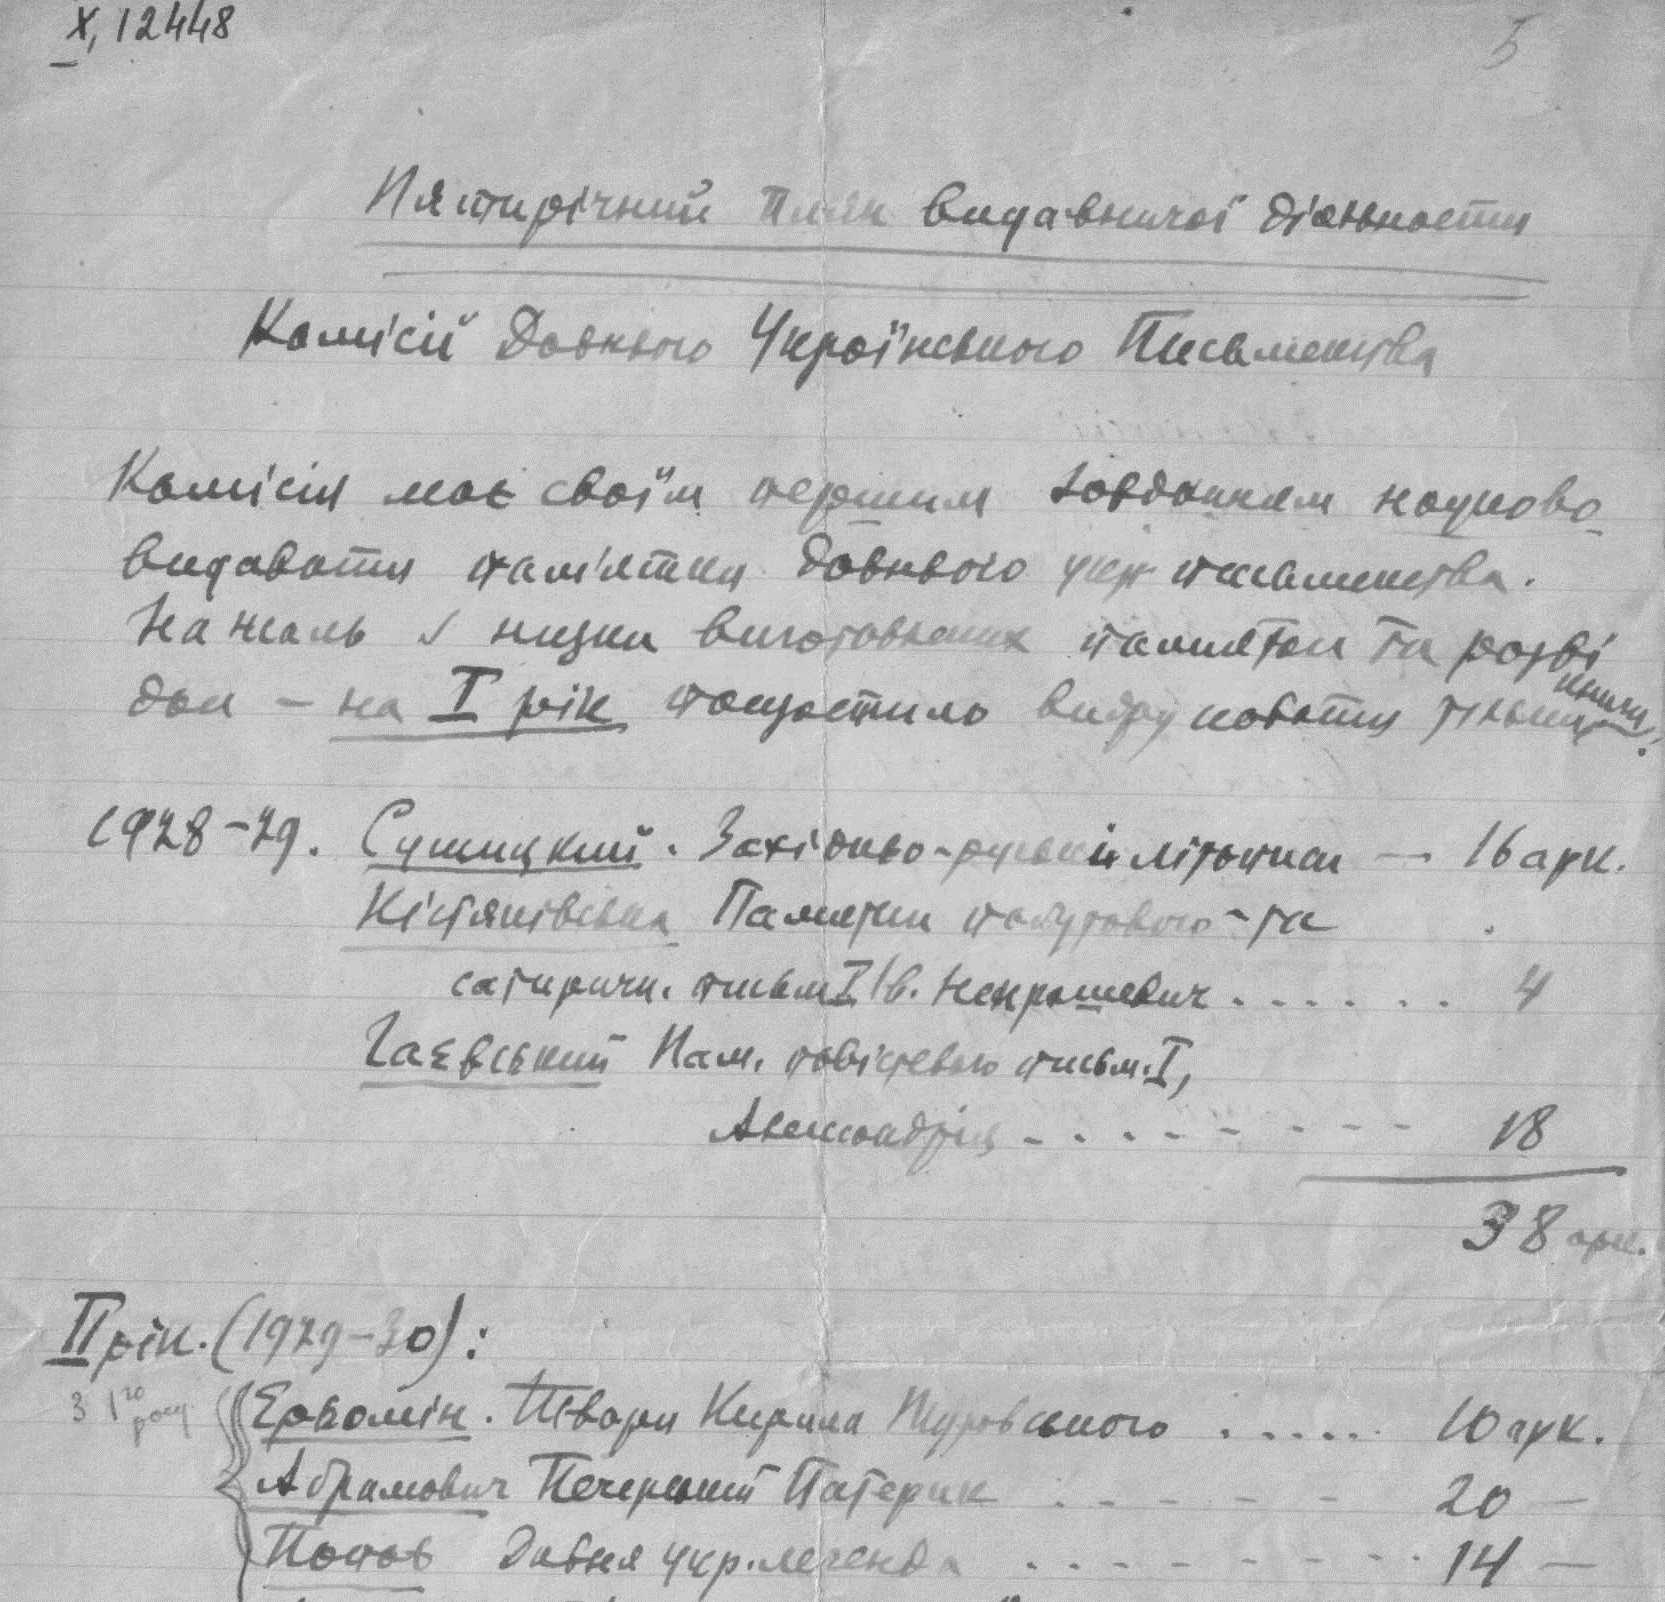 X, 12448
5
Пятирічний план видавничої діяльности
Комісії Давнього Українського Письменства
Комісія має своїм першим завданням науково
видавати пам'ятки давнього укр письменства.
На жаль з низки виготовлених памяток та розві
док – на I рік пощастило видрукувати тільки
1928–29. Сушицький. Західньо-руські літописи — 16 арк.
Кістяківська Памятки побутового та
сатиричн. письм I Ів. Некрашевич . . . . . . 4
Гаєвський Пам. повістевого письм. I,
Александрія - - - - - - - - - 18
38 арк.
II рік. (1929–30):
з 1го року
Єрьомін. Твори Кирила Туровського . . . . . . 10 арк.
Абрамович Печерський Патерик . - - - - - 20 —
Попов Давня укр. легенда . - - - - - - - 14 —